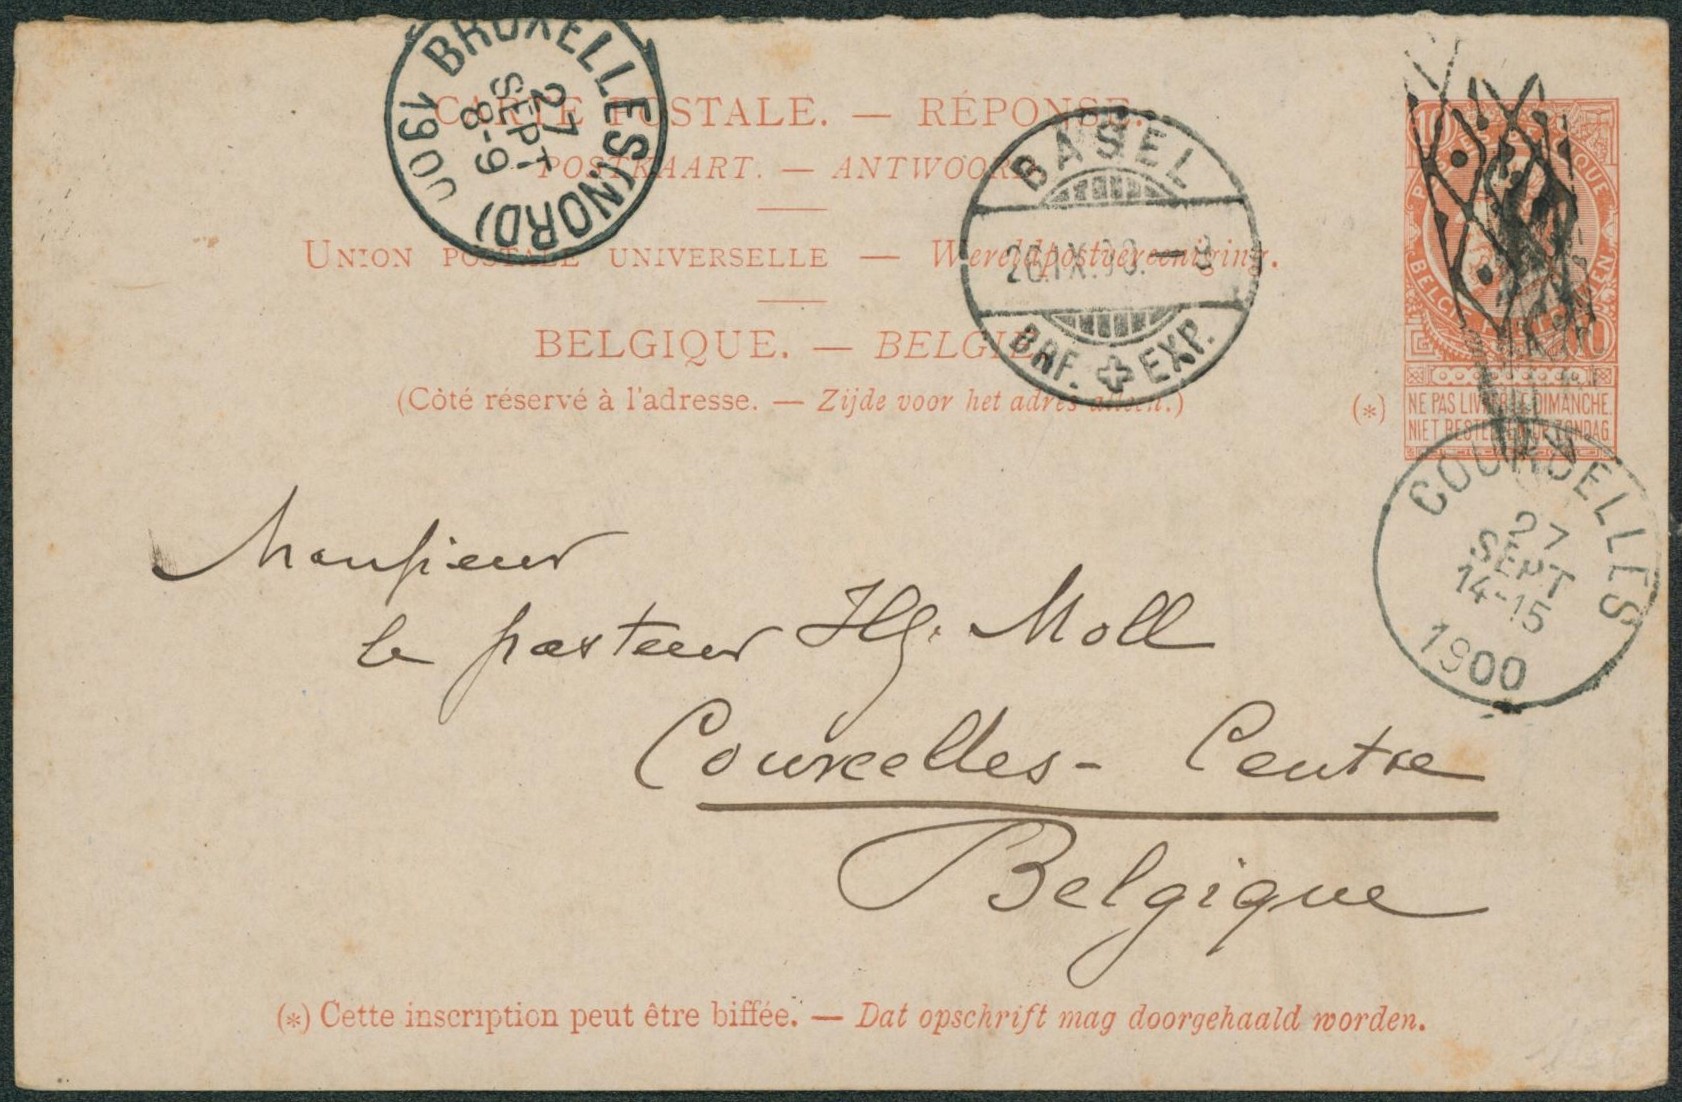 CARTE POSTALE. — RÉPONSE.
POSTKAART. — ANTWOORD
UNION POSTALE UNIVERSELLE — Wereldpostvereeniging.
BELGIQUE. — BELGIE
(Côté réservé à l'adresse. — Zijde voor het adres alleen.)
(*)
BRUXELLES (NORD)
27
SEPT
8-9
1900
BASEL
26.IX.00.—8
BRF. EXP.
10 10
BELGIË
NE PAS LIVRER LE DIMANCHE.
NIET BESTELLEN OP ZONDAG.
COURCELLES
27
SEPT
14-15
1900
Monsieur
le pasteur Hg. Moll
Courcelles-Centre
Belgique
(*) Cette inscription peut être biffée. — Dat opschrift mag doorgehaald worden.